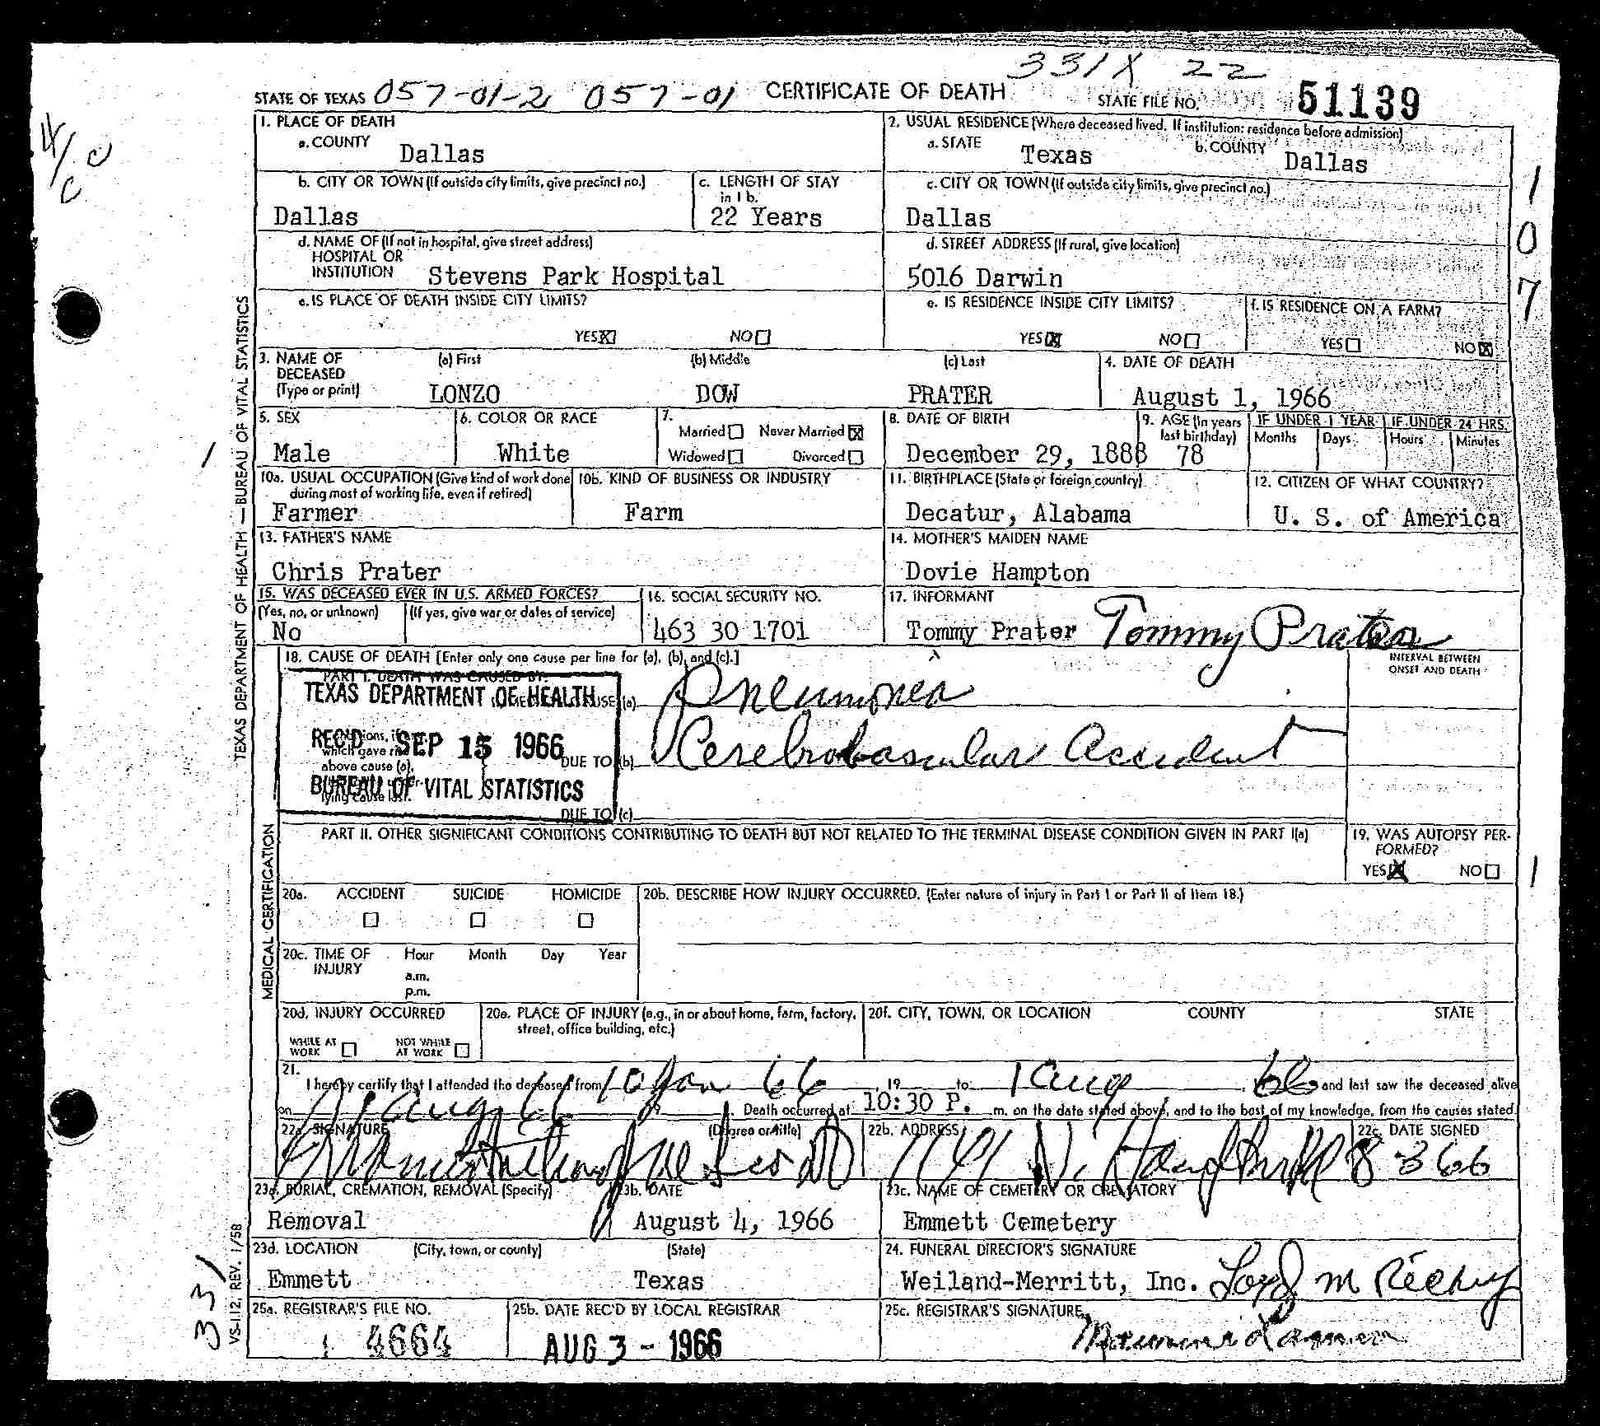 331X 22
STATE OF TEXAS 057-01-2 057-01 CERTIFICATE OF DEATH STATE FILE NO. 51139
1. PLACE OF DEATH
a. COUNTY Dallas
2. USUAL RESIDENCE (Where deceased lived. If institution: residence before admission)
a. STATE Texas b. COUNTY Dallas
b. CITY OR TOWN (If outside city limits, give precinct no.) Dallas
c. LENGTH OF STAY in 1 b. 22 Years
c. CITY OR TOWN (If outside city limits, give precinct no.) Dallas
d. NAME OF (If not in hospital, give street address)
HOSPITAL OR
INSTITUTION Stevens Park Hospital
d. STREET ADDRESS (If rural, give location)
5016 Darwin
e. IS PLACE OF DEATH INSIDE CITY LIMITS?
YES X NO
e. IS RESIDENCE INSIDE CITY LIMITS?
YES X NO
f. IS RESIDENCE ON A FARM?
YES NO X
107
3. NAME OF DECEASED (Type or print)
(a) First LONZO (b) Middle DOW (c) Last PRATER
4. DATE OF DEATH
August 1, 1966
5. SEX
Male
6. COLOR OR RACE
White
7. Married Never Married X
Widowed Divorced
8. DATE OF BIRTH
December 29, 1888
9. AGE (in years last birthday)
78
IF UNDER 1 YEAR Months Days
IF UNDER 24 HRS. Hours Minutes
10a. USUAL OCCUPATION (Give kind of work done during most of working life, even if retired)
Farmer
10b. KIND OF BUSINESS OR INDUSTRY
Farm
11. BIRTHPLACE (State or foreign country)
Decatur, Alabama
12. CITIZEN OF WHAT COUNTRY?
U. S. of America
13. FATHER'S NAME
Chris Prater
14. MOTHER'S MAIDEN NAME
Dovie Hampton
15. WAS DECEASED EVER IN U.S. ARMED FORCES?
(Yes, no, or unknown) (If yes, give war or dates of service)
No
16. SOCIAL SECURITY NO.
463 30 1701
17. INFORMANT
Tommy Prater Tommy Prater
18. CAUSE OF DEATH [Enter only one cause per line for (a), (b), and (c).]
INTERVAL BETWEEN ONSET AND DEATH
PART I. DEATH WAS CAUSED BY:
TEXAS DEPARTMENT OF HEALTH
REC'D SEP 15 1966
BUREAU OF VITAL STATISTICS
(a) Pneumonea
DUE TO (b) Cerebrovascular Accident
DUE TO (c)
PART II. OTHER SIGNIFICANT CONDITIONS CONTRIBUTING TO DEATH BUT NOT RELATED TO THE TERMINAL DISEASE CONDITION GIVEN IN PART I(a)
19. WAS AUTOPSY PERFORMED?
YES X NO
20a. ACCIDENT SUICIDE HOMICIDE
20b. DESCRIBE HOW INJURY OCCURRED. (Enter nature of injury in Part I or Part II of Item 18.)
20c. TIME OF INJURY Hour Month Day Year
a.m.
p.m.
20d. INJURY OCCURRED
WHILE AT WORK NOT WHILE AT WORK
20e. PLACE OF INJURY (e.g., in or about home, farm, factory, street, office building, etc.)
20f. CITY, TOWN, OR LOCATION COUNTY STATE
21. I hereby certify that I attended the deceased from 10 Jan 66, 19 to 1 Aug 66 and last saw the deceased alive
on 1 Aug 66. Death occurred at 10:30 P. m. on the date stated above, and to the best of my knowledge, from the causes stated.
22a. SIGNATURE (Degree or title)
22b. ADDRESS
22c. DATE SIGNED
8-3 66
23a. BURIAL, CREMATION, REMOVAL (Specify)
Removal
23b. DATE
August 4, 1966
23c. NAME OF CEMETERY OR CREMATORY
Emmett Cemetery
23d. LOCATION (City, town, or county) (State)
Emmett Texas
24. FUNERAL DIRECTOR'S SIGNATURE
Weiland-Merritt, Inc.
25a. REGISTRAR'S FILE NO.
4664
25b. DATE REC'D BY LOCAL REGISTRAR
AUG 3 - 1966
25c. REGISTRAR'S SIGNATURE
TEXAS DEPARTMENT OF HEALTH — BUREAU OF VITAL STATISTICS
MEDICAL CERTIFICATION
VS-112 REV. 1/58
331